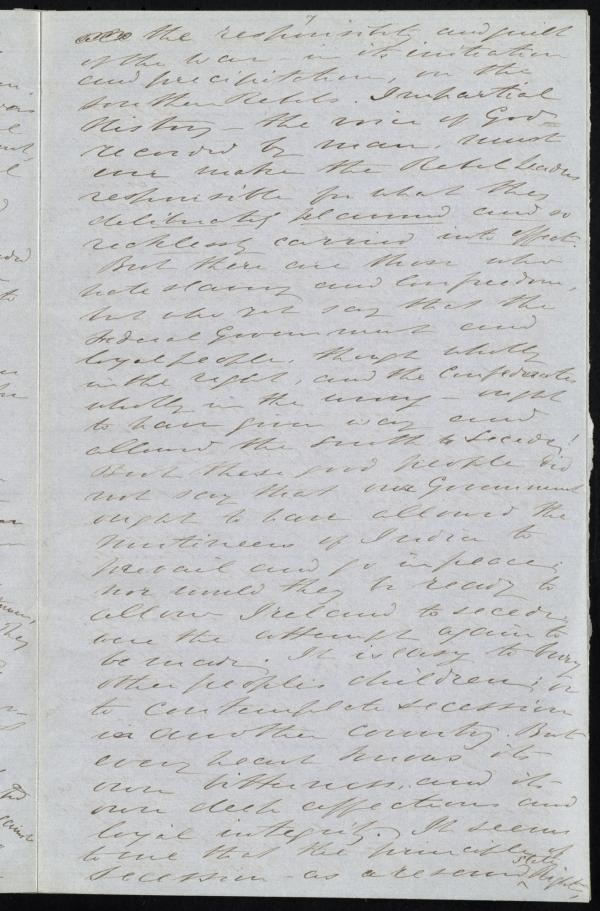 7
the responsibility and guilt
of the war – in its initiation
and precipitation, on the
Southern Rebels. Impartial
History – the voice of God
recorded by man, must
ever make the Rebel leaders
responsible for what they
deliberately planned and so
recklessly carried into effect.
But there are those who
hate slavery and love freedom,
but who yet say that the
Federal Government and
loyal people, though wholly
in the right, and the Confederates
wholly in the wrong – ought
to have given way and
allowed the South to Secede!
But these good people did
not say that our Government
ought to have allowed the
mutineers of India to
prevail and go in peace;
nor would they be ready to
allow Ireland to secede,
were the attempt again to
be made. It is easy to bury
other people's children; or
to contemplate secession
in another country. But
every heart knows its
own bitterness, and its
own deep affections and
loyal integrity. It seems
to me that the principle of
secession – as a reserved State Right,